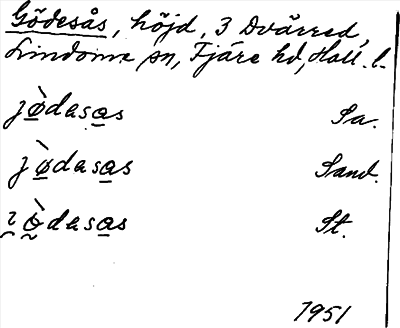 Gödesås, höjd, 3 Dvärred,
Lindome sn, Fjäre hd, Hall. l.
jø̀dasas Sa.
jø̀dasas Sand.
ɿø̀dasas St.
1951